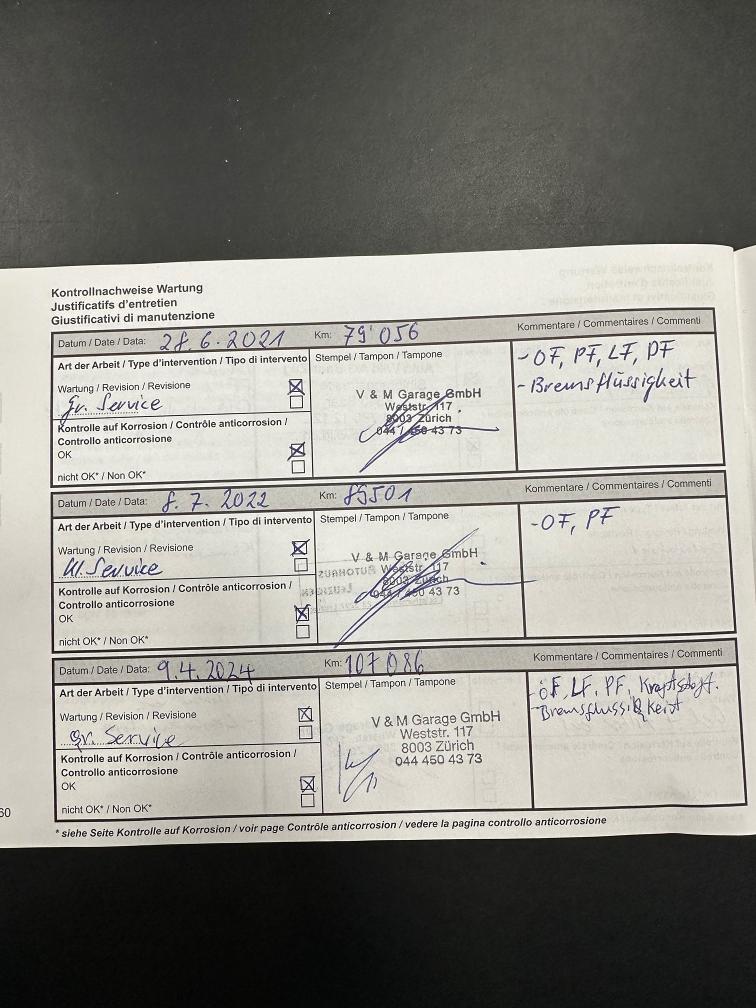 Kontrollnachweise Wartung
Justificatifs d'entretien
Giustificativi di manutenzione
Datum / Date / Data: 28.6.2021 Km: 79'056 Kommentare / Commentaires / Commenti
Art der Arbeit / Type d'intervention / Tipo di intervento Stempel / Tampon / Tampone
- OF, PF, LF, DF
- Bremsflüssigkeit
Wartung / Revision / Revisione
gr. Service
Kontrolle auf Korrosion / Contrôle anticorrosion /
Controllo anticorrosione
OK
nicht OK* / Non OK*
V & M Garage GmbH
Weststr. 117
8003 Zürich
044 / 450 43 73
Datum / Date / Data: 8.7.2022 Km: 89501 Kommentare / Commentaires / Commenti
Art der Arbeit / Type d'intervention / Tipo di intervento Stempel / Tampon / Tampone
- OF, PF
Wartung / Revision / Revisione
kl. Service
Kontrolle auf Korrosion / Contrôle anticorrosion /
Controllo anticorrosione
OK
nicht OK* / Non OK*
V & M Garage GmbH
Weststr. 117
8003 Zürich
044 / 450 43 73
Datum / Date / Data: 9.4.2024 Km: 107086 Kommentare / Commentaires / Commenti
Art der Arbeit / Type d'intervention / Tipo di intervento Stempel / Tampon / Tampone
- öF, LF, PF, Kraftstoff.
- Bremsflussigkeit
Wartung / Revision / Revisione
gr. Service
Kontrolle auf Korrosion / Contrôle anticorrosion /
Controllo anticorrosione
OK
nicht OK* / Non OK*
V & M Garage GmbH
Weststr. 117
8003 Zürich
044 450 43 73
60
* siehe Seite Kontrolle auf Korrosion / voir page Contrôle anticorrosion / vedere la pagina controllo anticorrosione